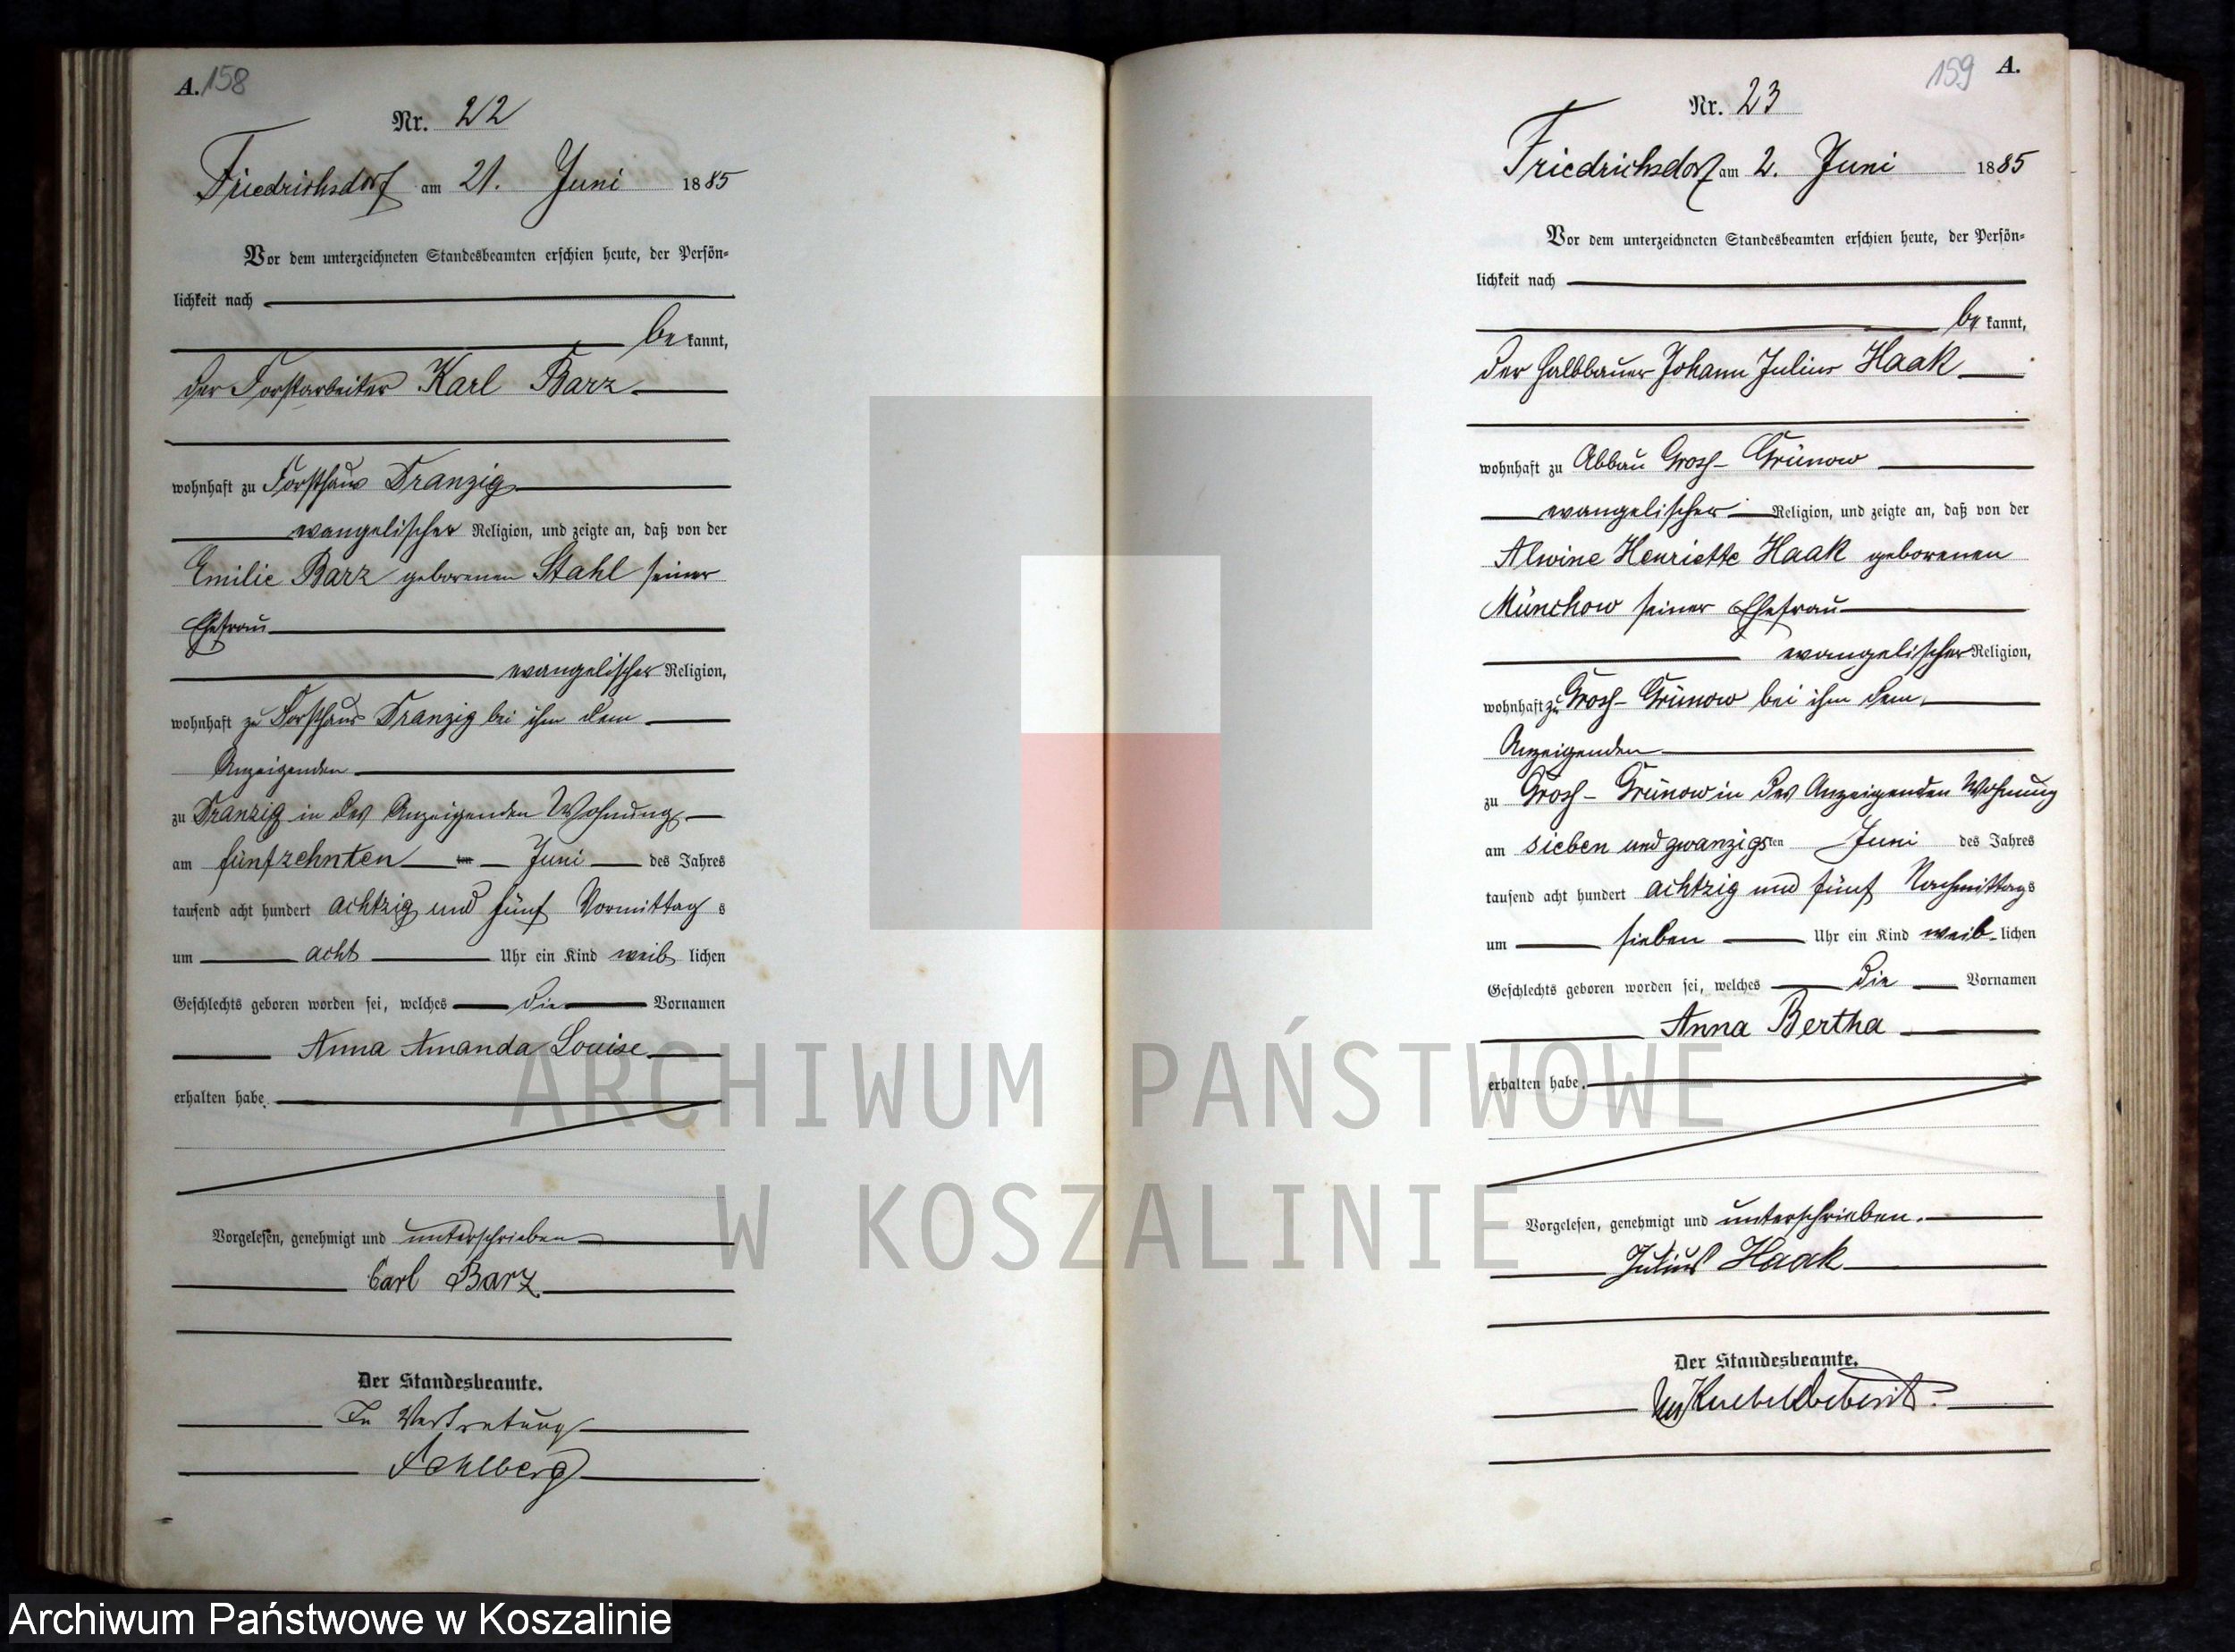 A. 158
Nr. 22
Friedrichsdorf am 21. Juni 1885
Vor dem unterzeichneten Standesbeamten erschien heute, der Persön-
lichkeit nach
be kannt,
der Forstarbeiter Karl Barz
wohnhaft zu Forsthaus Dranzig
evangelischer Religion, und zeigte an, daß von der
Emilie Barz geborenen Stahl seiner
Ehefrau
evangelischer Religion,
wohnhaft zu Forsthaus Dranzig bei ihm dem
Anzeigenden
zu Dranzig in des Anzeigenden Wohnung
am fünfzehnten ten Juni des Jahres
tausend acht hundert achtzig und fünf Vormittag s
um acht Uhr ein Kind weib lichen
Geschlechts geboren worden sei, welches die Vornamen
Anna Amanda Louise
erhalten habe.
Vorgelesen, genehmigt und unterschrieben
Carl Barz.
Der Standesbeamte.
In Vertretung
Fehlberg
159 A.
Nr. 23
Friedrichsdorf am 2. Juni 1885
Vor dem unterzeichneten Standesbeamten erschien heute, der Persön-
lichkeit nach
be kannt,
der Halbbauer Johann Julius Haak
wohnhaft zu Abbau Grosz-Grünow
evangelischer Religion, und zeigte an, daß von der
Alwine Henriette Haak geborenen
Münchow seiner Ehefrau
evangelischer Religion,
wohnhaft zu Grosz-Grünow bei ihm dem
Anzeigenden
zu Grosz-Grünow in des Anzeigenden Wohnung
am sieben und zwanzigsten Juni des Jahres
tausend acht hundert achtzig und fünf Nachmittags
um sieben Uhr ein Kind weib lichen
Geschlechts geboren worden sei, welches die Vornamen
Anna Bertha
erhalten habe.
Vorgelesen, genehmigt und unterschrieben.
Julius Haak
Der Standesbeamte.
ARCHIWUM PAŃSTWOWE
W KOSZALINIE
Archiwum Państwowe w Koszalinie